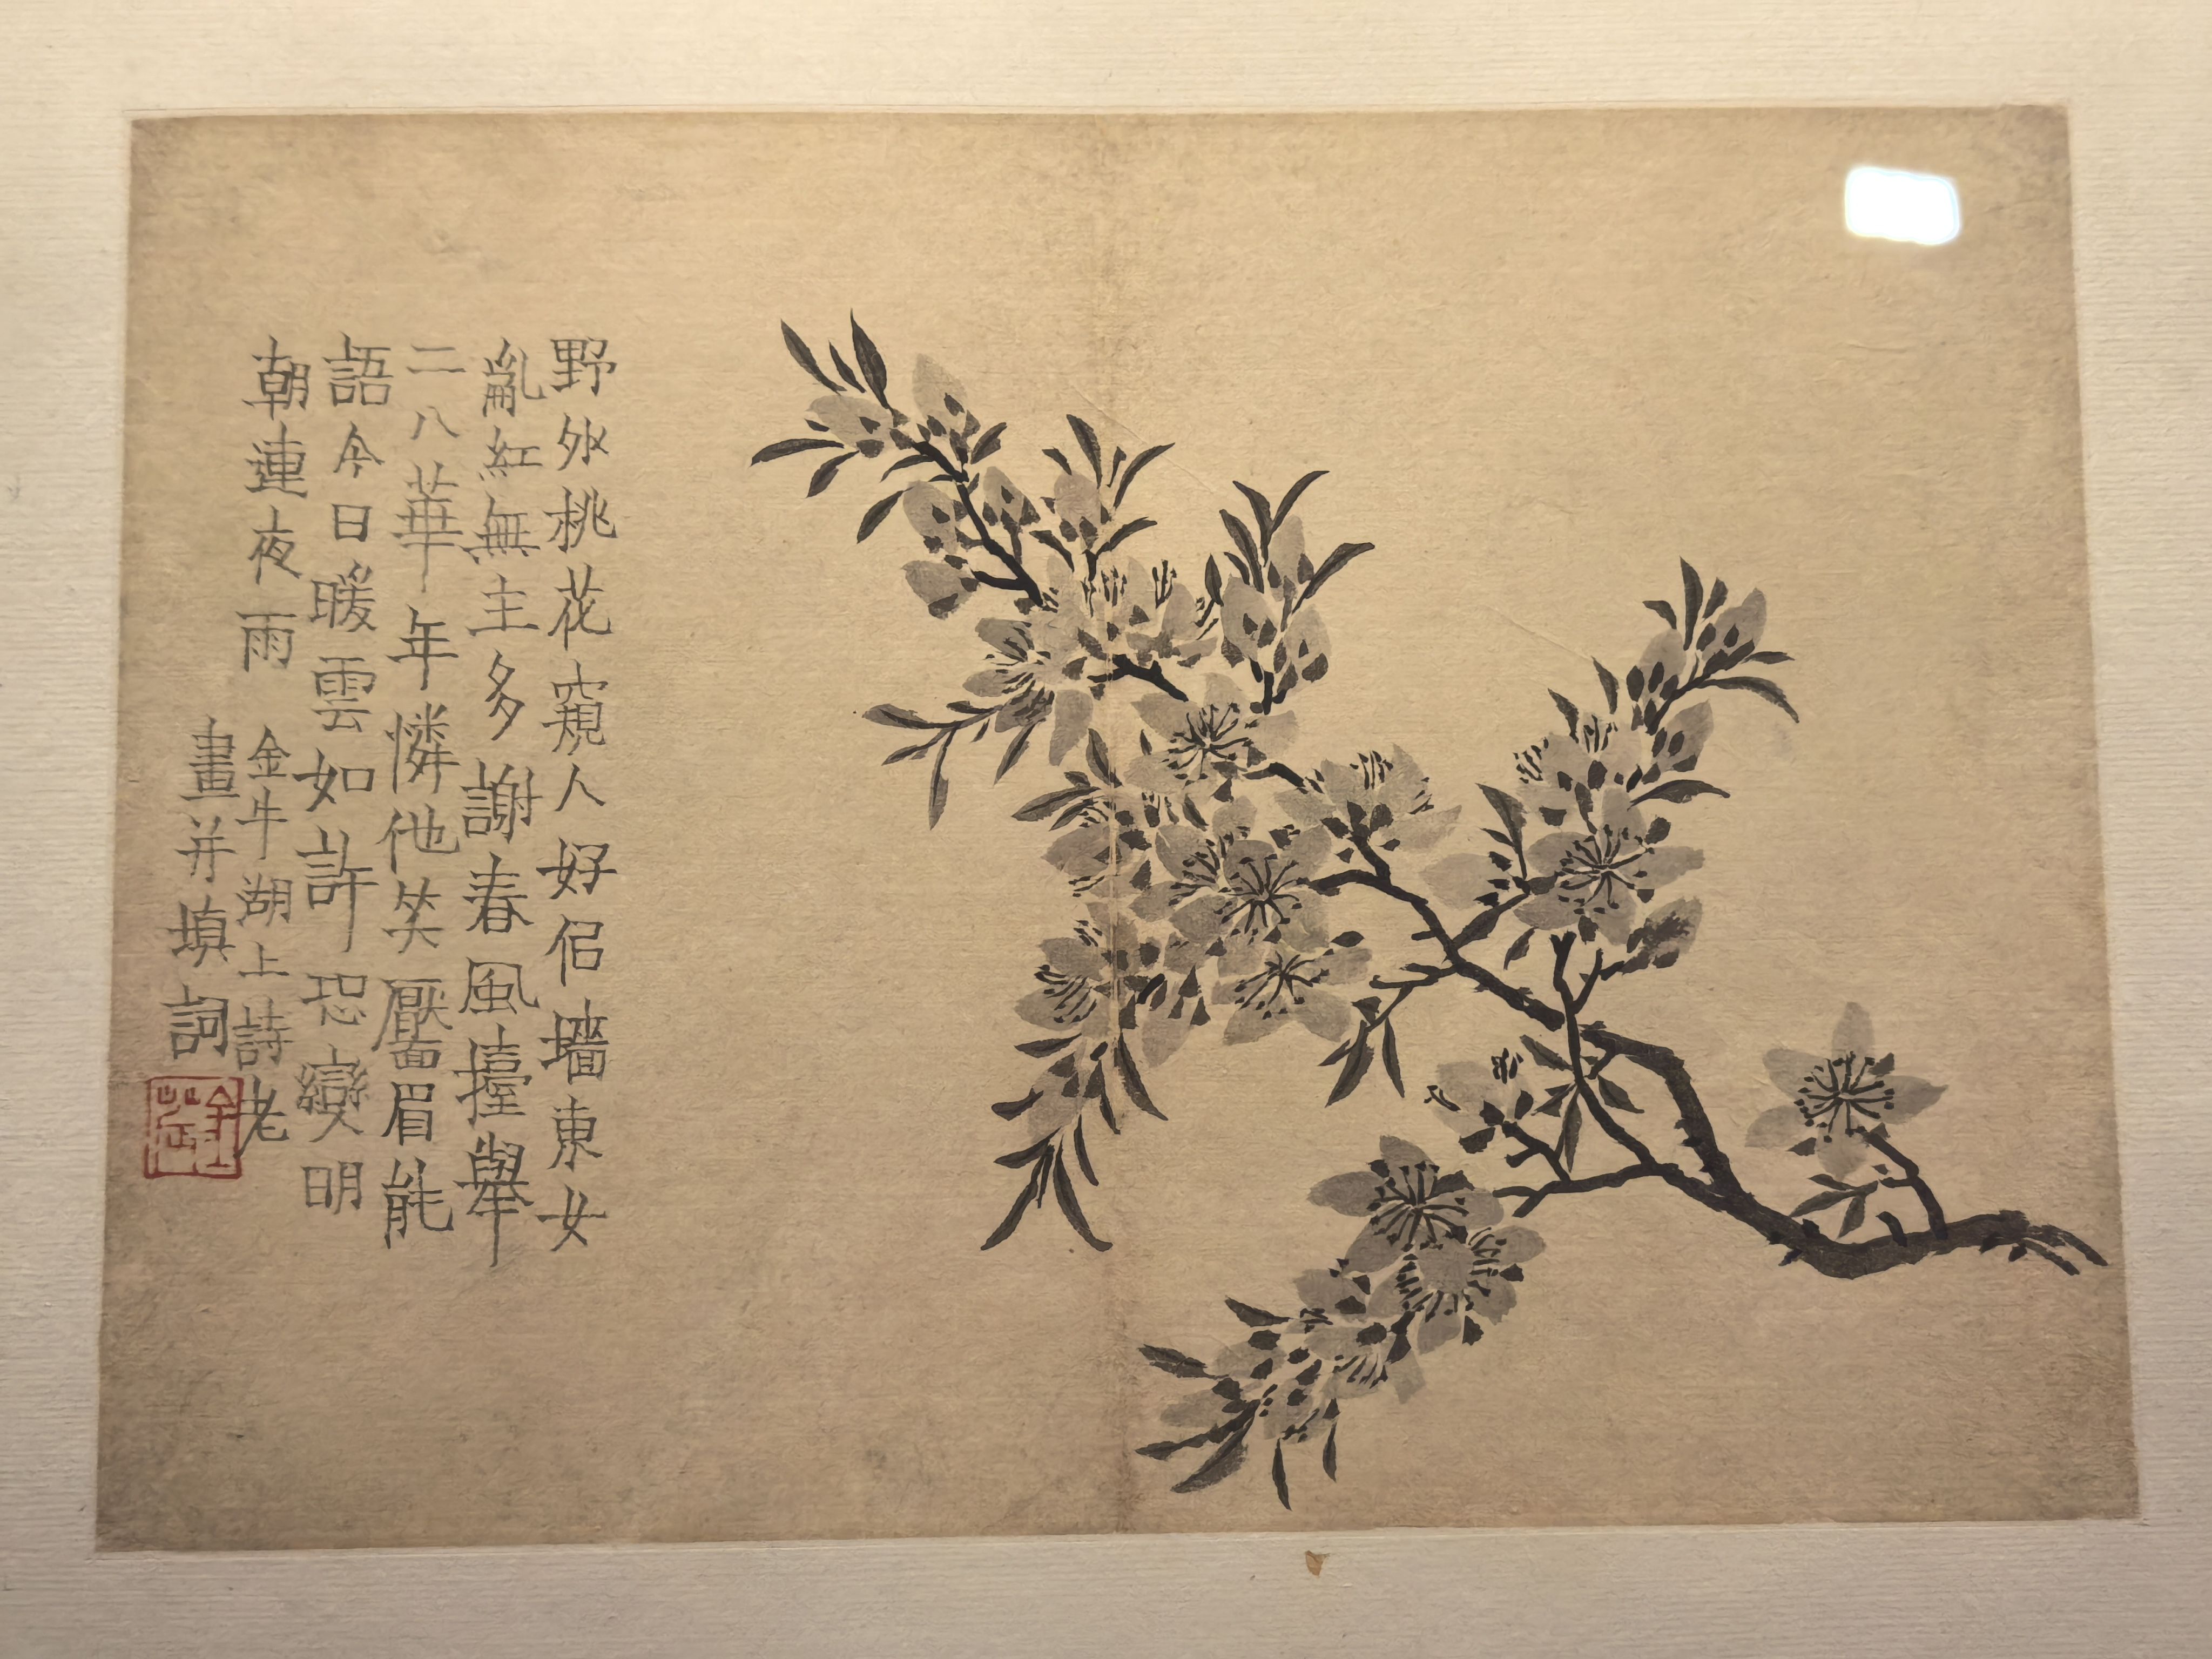 野外桃花窺人好侣墻東女
亂紅無主多謝春風擡舉
二八華年憐他笑靨眉能
語今日暖雲如許恐變明
朝連夜雨
金牛湖上詩老
畫并填詞